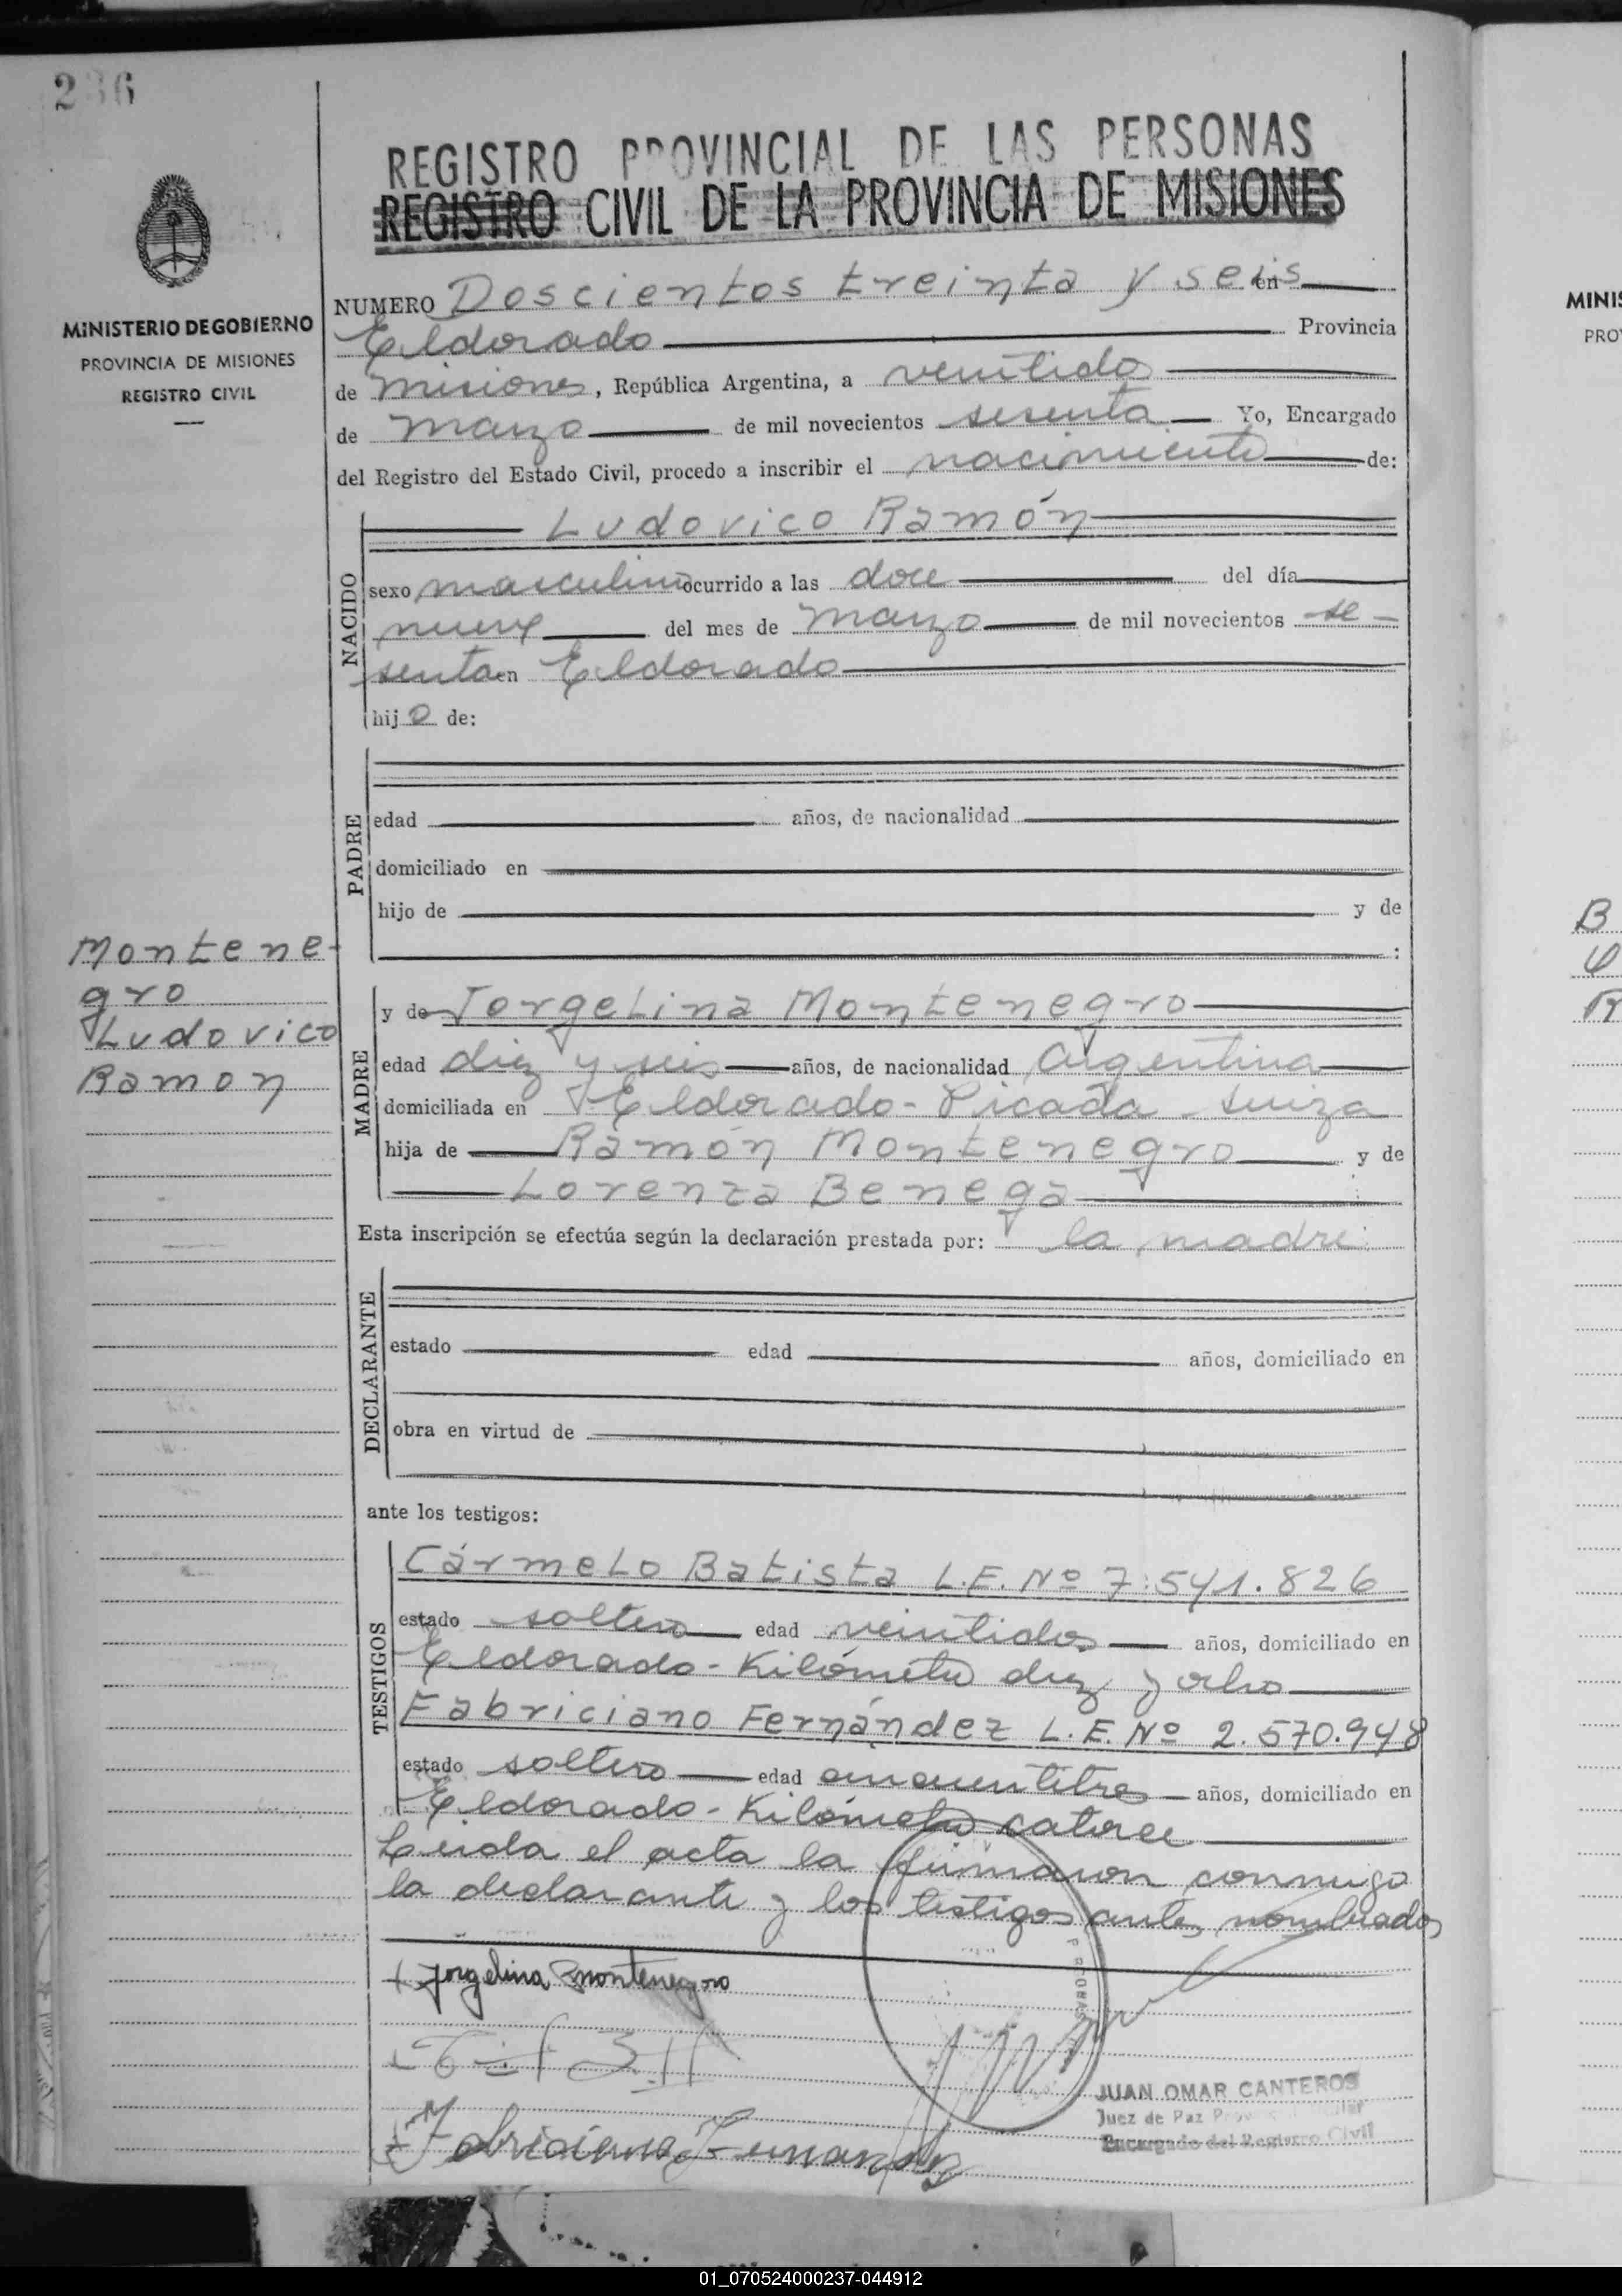 236
REGISTRO PROVINCIAL DE LAS PERSONAS
REGISTRO CIVIL DE LA PROVINCIA DE MISIONES
MINISTERIO DE GOBIERNO
PROVINCIA DE MISIONES
REGISTRO CIVIL
NUMERO Doscientos treinta y seis en
Eldorado Provincia
de Misiones, República Argentina, a veintidos
de marzo de mil novecientos sesenta Yo, Encargado
del Registro del Estado Civil, procedo a inscribir el nacimiento de:
NACIDO
Ludovico Ramón
sexo masculino ocurrido a las doce del día
nueve del mes de marzo de mil novecientos se-
senta en Eldorado
hijo de:
PADRE
edad años, de nacionalidad
domiciliado en
hijo de y de
:
Montene-
gro
Ludovico
Ramon
MADRE
y de Jorgelina Montenegro
edad diez y seis años, de nacionalidad Argentina
domiciliada en Eldorado - Picada Suiza
hija de Ramón Montenegro y de
Lorenza Benega
Esta inscripción se efectúa según la declaración prestada por: la madre
DECLARANTE
estado edad años, domiciliado en
obra en virtud de
ante los testigos:
TESTIGOS
Cármelo Batista L.E. Nº 7.541.826
estado soltero edad veintidos años, domiciliado en
Eldorado - Kilómetro diez y ocho
Fabriciano Fernández L.E. Nº 2.570.948
estado soltero edad cincuentitres años, domiciliado en
Eldorado - Kilómetro catorce
Leida el acta la firmaron conmigo
la declarante y los testigos antes nombrados
Jorgelina Montenegro
Fabriciano Fernandez
JUAN OMAR CANTEROS
Juez de Paz
Encargado del Registro Civil
MINIS
PRO
B
R
01_070524000237-044912